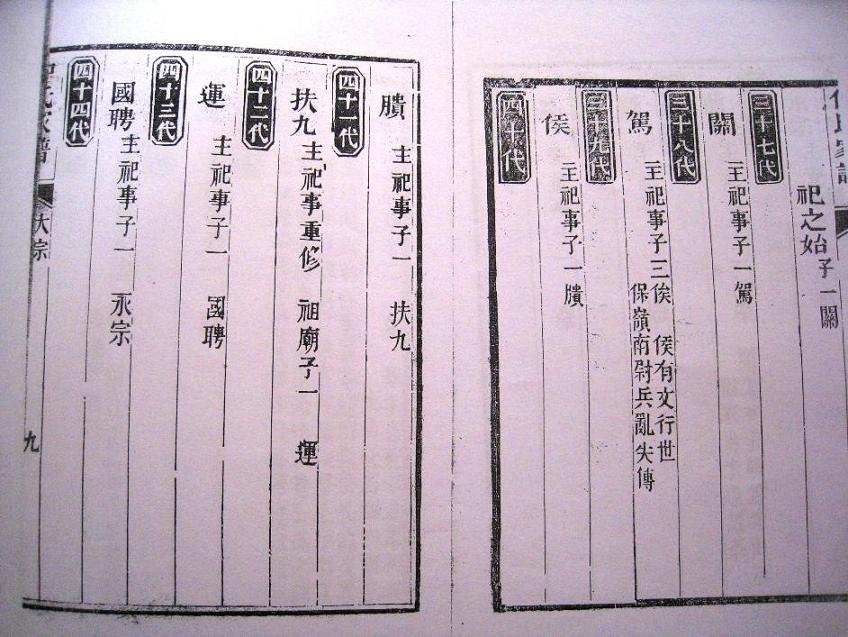 祀之始子一關
三十七代
關 主祀事子一駕
三十八代
駕 主祀事子三俟 侯有文行世
保嶺南尉兵亂失傳
三十九代
侯 主祀事子一膭
四十代
膭 主祀事子一 扶九
四十一代
扶九 主祀事重修 祖廟子一 運
四十二代
運 主祀事子一 國聘
四十三代
國聘 主祀事子一 永宗
四十四代
氏家譜 大宗 九